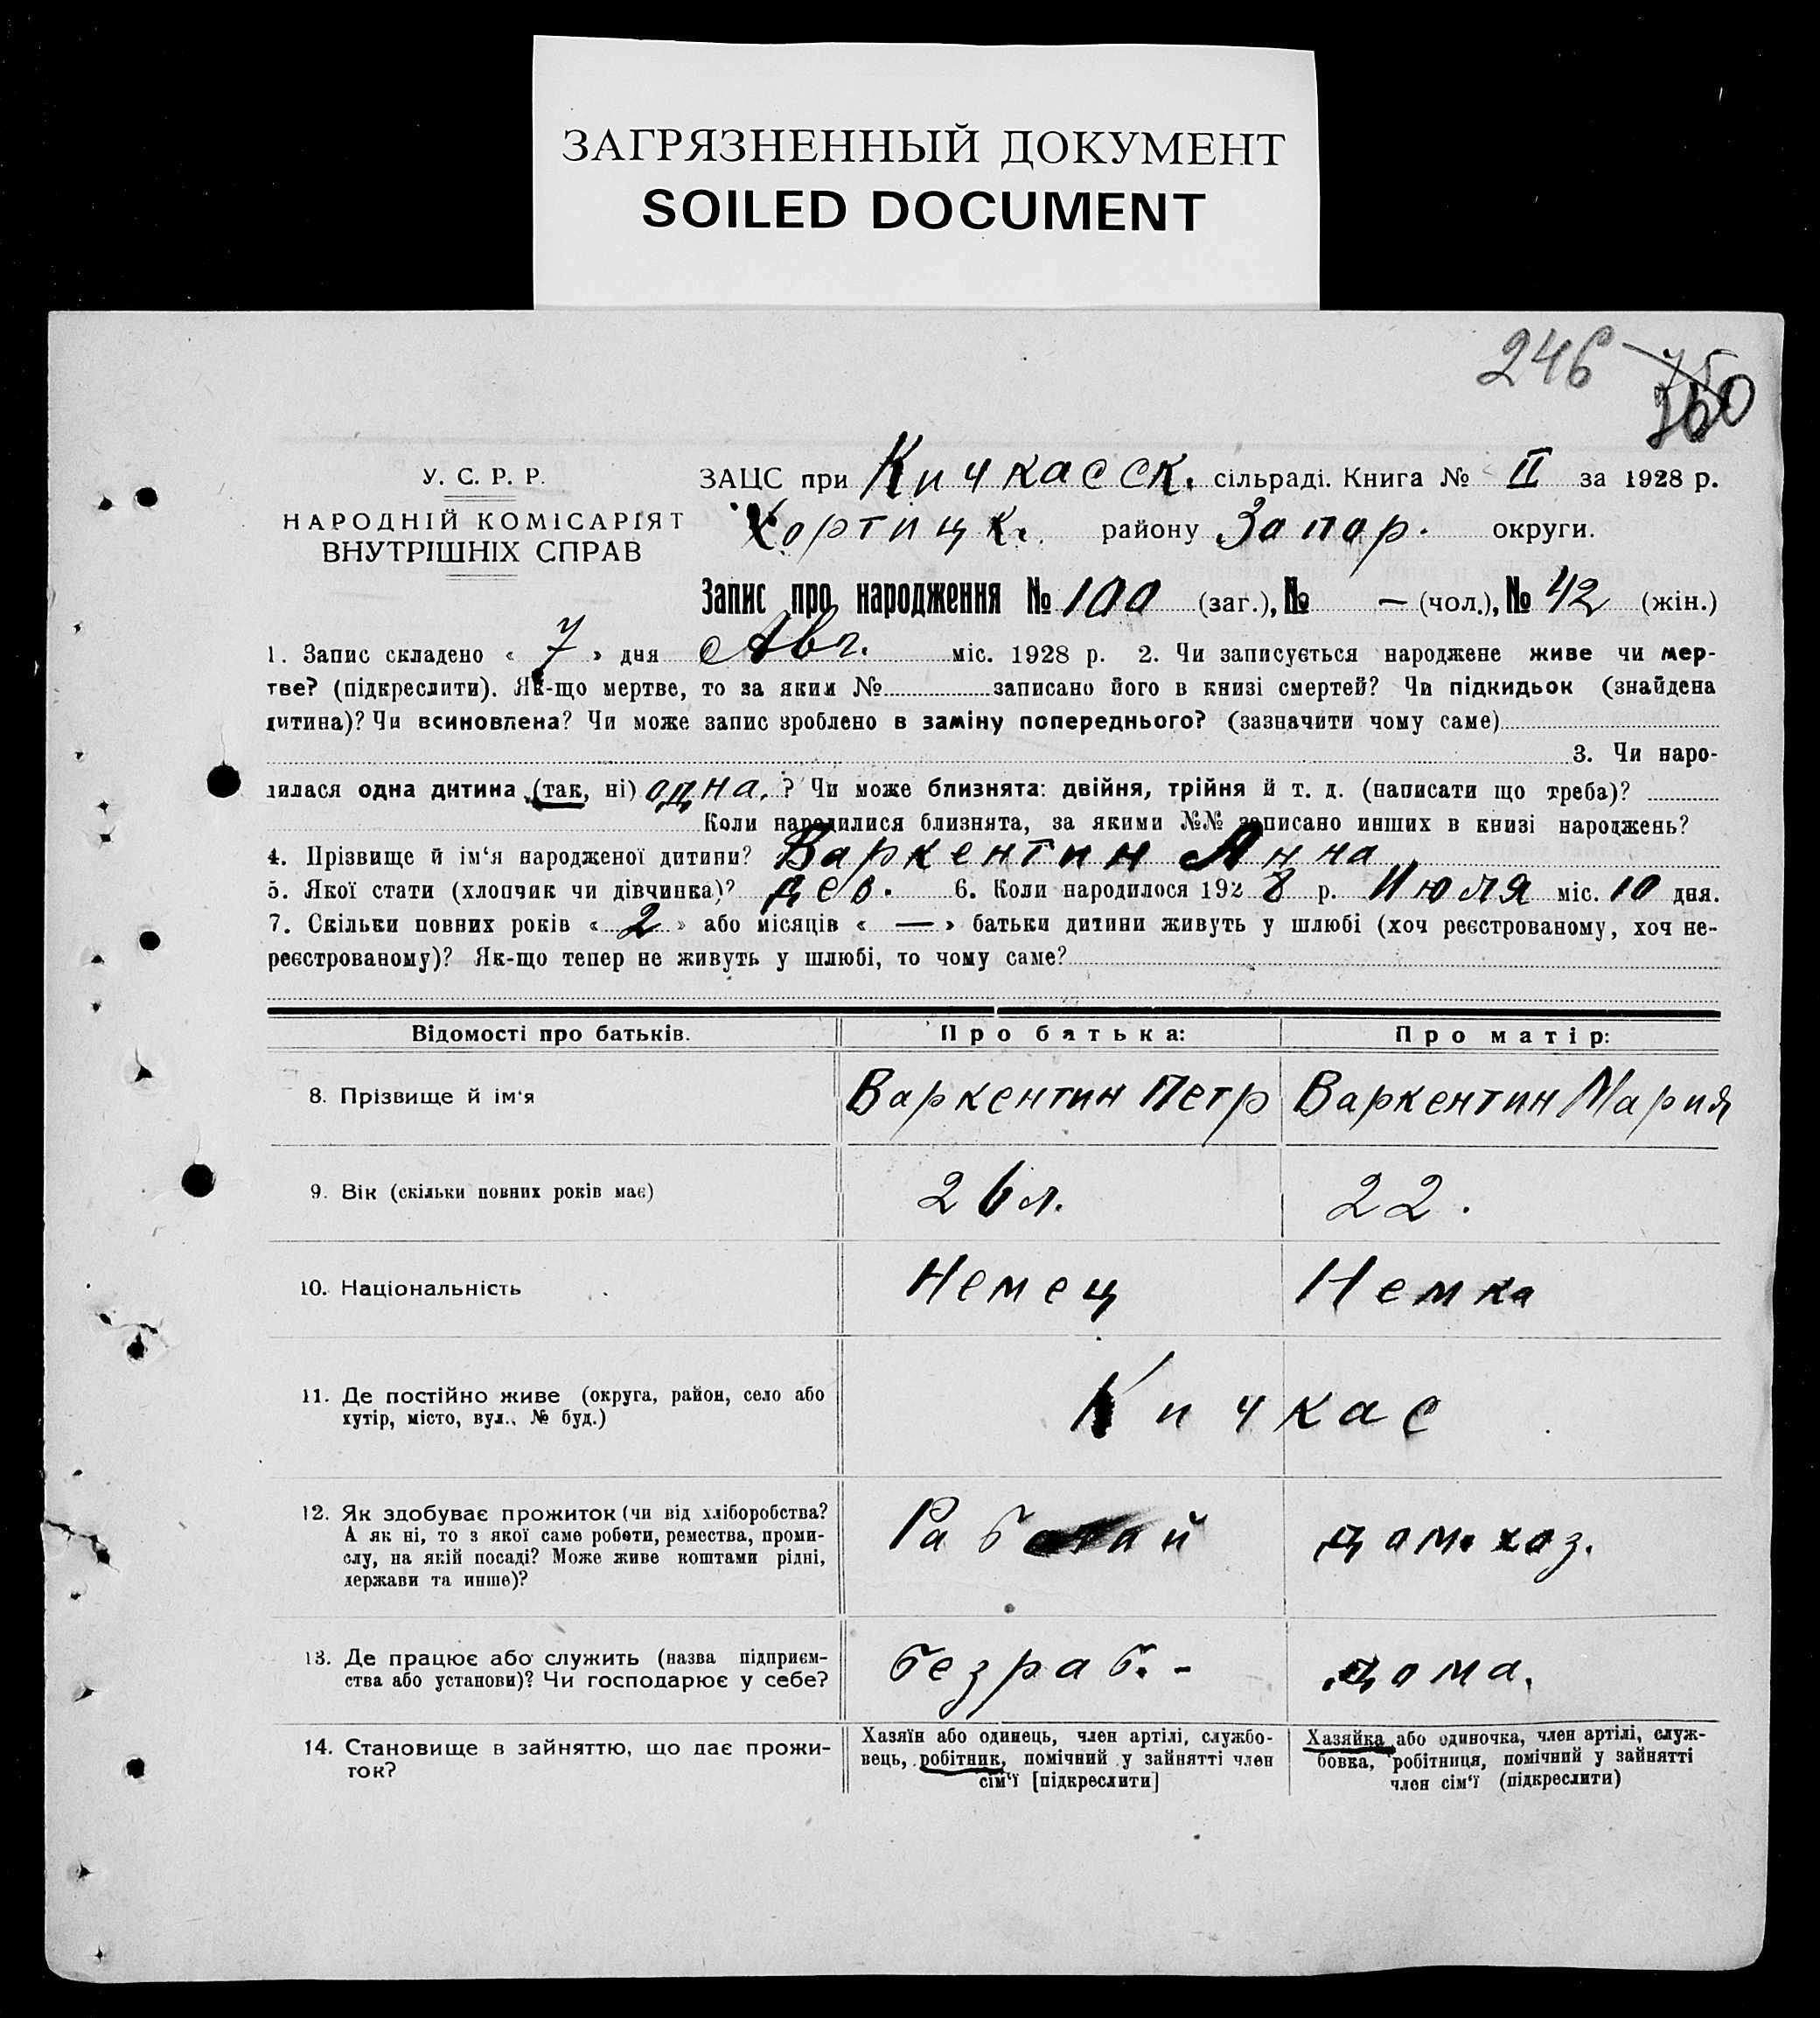 ЗАГРЯЗНЕННЫЙ ДОКУМЕНТ
SOILED DOCUMENT
246
У. С. Р. Р.
НАРОДНІЙ КОМІСАРІЯТ
ВНУТРІШНІХ СПРАВ
ЗАЦС при Кичкасск. сільраді. Книга № II за 1928 р.
Хортицк. району Запор. округи.
Запис про народження № 100 (заг.), № — (чол.), № 42 (жін.)
1. Запис складено « 7 » дня Авг. міс. 1928 р. 2. Чи записується народжене живе чи мер-
тве? (підкреслити). Як-що мертве, то за яким № записано його в книзі смертей? Чи підкидьок (знайдена
дитина)? Чи всиновлена? Чи може запис зроблено в заміну попереднього? (зазначити чому саме)
3. Чи наро-
дилася одна дитина (так, ні) одна. ? Чи може близнята: двійня, трійня й т. д. (написати що треба)?
Коли народилися близнята, за якими №№ записано инших в книзі народжень?
4. Прізвище й ім‘я народженої дитини? Варкентин Анна
5. Якої стати (хлопчик чи дівчинка)? дев. 6. Коли народилося 1928 р. Июля міс. 10 дня.
7. Скільки повних років « 2 » або місяців « — » батьки дитини живуть у шлюбі (хоч реєстрованому, хоч не-
реєстрованому)? Як-що тепер не живуть у шлюбі, то чому саме?
Відомості про батьків. Про батька: Про матір:
8. Прізвище й ім‘я Варкентин Петр Варкентин Мария
9. Вік (скільки повних років має) 26 л. 22.
10. Національність Немец Немка
11. Де постійно живе (округа, район, село або
хутір, місто, вул., № буд.)
Кичкас
12. Як здобуває прожиток (чи від хліборобства?
А як ні, то з якої саме роботи, ремества, проми-
слу, на якій посаді? Може живе коштами рідні,
держави та инше)?
дом. хоз.
13. Де працює або служить (назва підприєм-
ства або установи)? Чи господарює у себе?
безраб. - дома.
14. Становище в зайняттю, що дає прожи-
ток?
Хазяїн або одинець, член артілі, службо-
вець, робітник, помічний у зайнятті член
сім‘ї [підкреслити]
Хазяйка або одиночка, член артілі, служ-
бовка, робітниця, помічний у зайнятті
член сім‘ї (підкреслити)